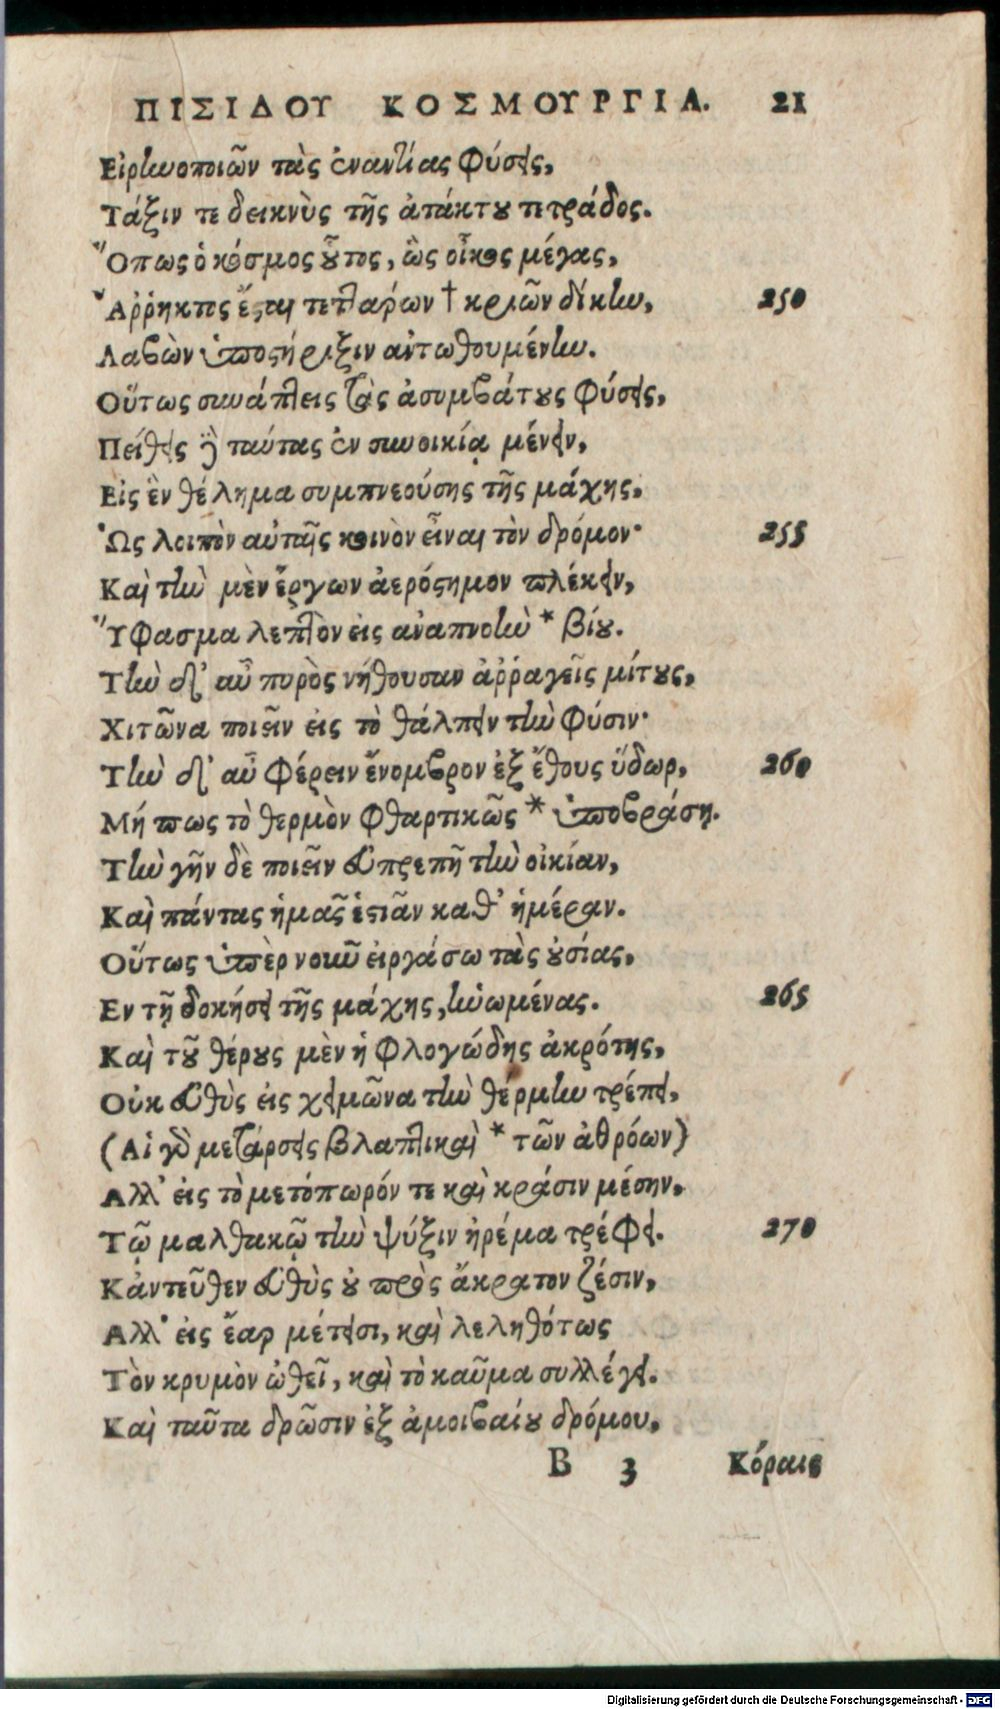 ΠΙΣΙΔΟΥ ΚΟΣΜΟΥΡΓΙΑ. 21
Εἰρηνοποιῶν τὰς ἐναντίας φύσεις,
Τάξιν τε δεικνὺς τῆς ἀτάκτου τετράδος.
Ὅπως ὁ κόσμος οὗτος, ὡς οἶκος μέγας,
Ἄῤῥηκτος ἔσται τεττάρων † κριῶν δίκην, 250
Λαβὼν ὑποστήριξιν αντωθουμένην.
Οὕτως συνάπτεις τὰς ἀσυμβάτους φύσεις,
Πείθεις δὲ ταύτας ἐν συνοικίᾳ μένειν,
Εἰς ἓν θέλημα συμπνεούσης τῆς μάχης.
Ὡς λοιπὸν αὐταῖς κοινὸν εἶναι τὸν δρόμον· 255
Καὶ τὴν μὲν ἔργων ἀερόσημον πλέκειν,
Ὕφασμα λεπτὸν εἰς αναπνοὴν * βίου.
Τὴν δ' αὖ πυρὸς νήθουσαν ἀῤῥαγεῖς μίτους,
Χιτῶνα ποιεῖν εἰς τὸ θάλπειν τὴν φύσιν·
Τὴν δ' αὖ φέρειν ἔνομβρον ἐξ ἔθους ὕδωρ, 260
Μή πως τὸ θερμὸν φθαρτικῶς * ὑποβράσῃ.
Τὴν γῆν δὲ ποιεῖν εὐπρεπῆ τὴν οἰκίαν,
Καὶ πάντας ἡμᾶς ἑστιᾶν καθ' ἡμέραν.
Οὕτως ὑπὲρ νοῦν εἰργάσω τὰς οὐσίας,
Εν τῇ δοκήσει τῆς μάχης, ἡνωμένας. 265
Καὶ τοῦ θέρους μὲν ἡ φλογώδης ἀκρότης,
Οὐκ εὐθὺς εἰς χειμῶνα τὴν θέρμην τρέπει,
(Αἱ γὰρ μετάρσεις βλαπτικαὶ * τῶν ἀθρόων)
Αλλ' εἰς τὸ μετόπωρόν τε καὶ κράσιν μέσην,
Τῷ μαλθακῷ τὴν ψύξιν ἠρέμα τρέφει. 270
Κἀντεῦθεν εὐθὺς οὐ πρὸς ἄκρατον ζέσιν,
Αλλ' εἰς ἔαρ μέτεισι, καὶ λεληθότως
Τὸν κρυμὸν ὠθεῖ, καὶ τὸ καῦμα συλλέγει.
Καὶ ταῦτα δρῶσιν ἐξ ἀμοιβαίου δρόμου,
B 3 Κόραις
Digitalisierung gefördert durch die Deutsche Forschungsgemeinschaft - DFG